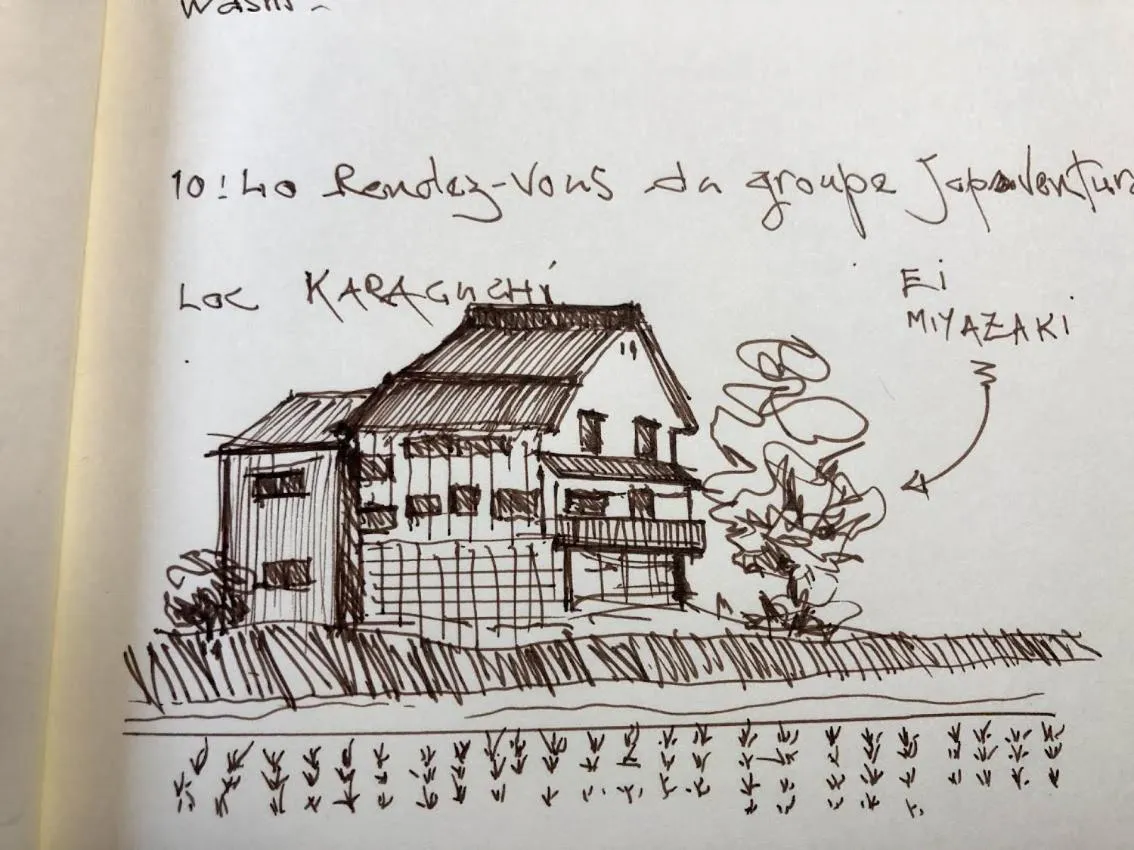 Washi
10:40 Rendez-Vous du groupe Japaventura
Loc KARAGUCHI
Ei
MIYAZAKI